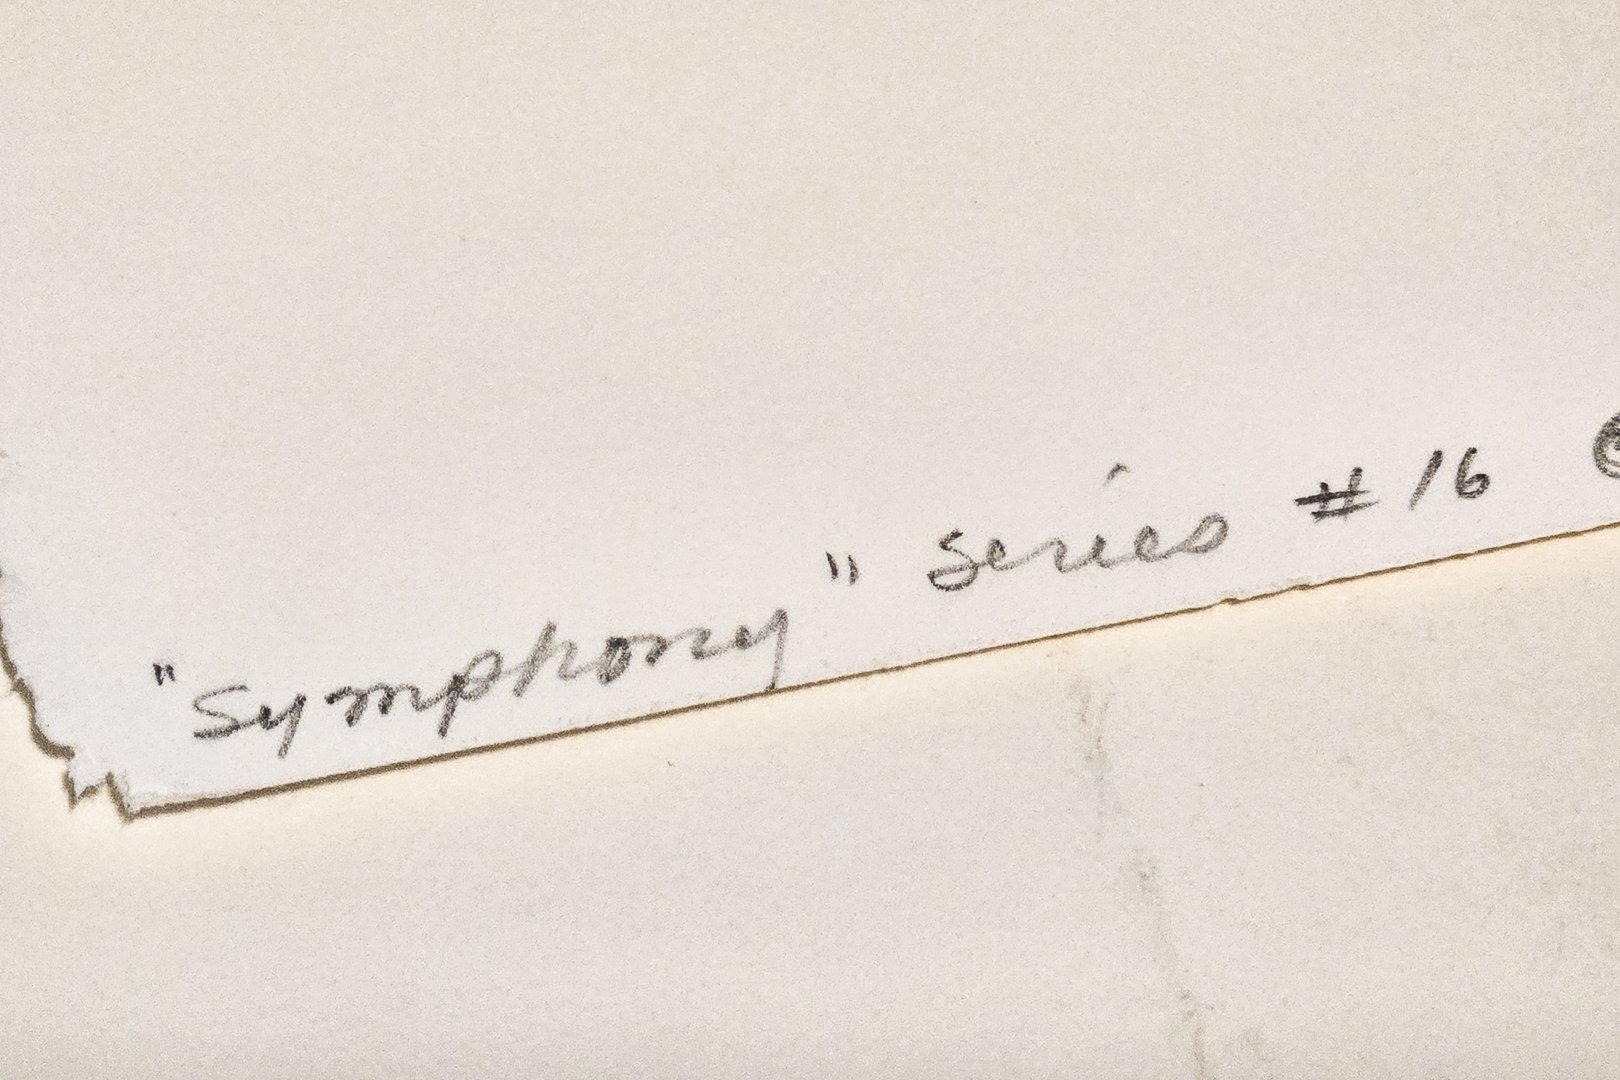 "Symphony" Series #16